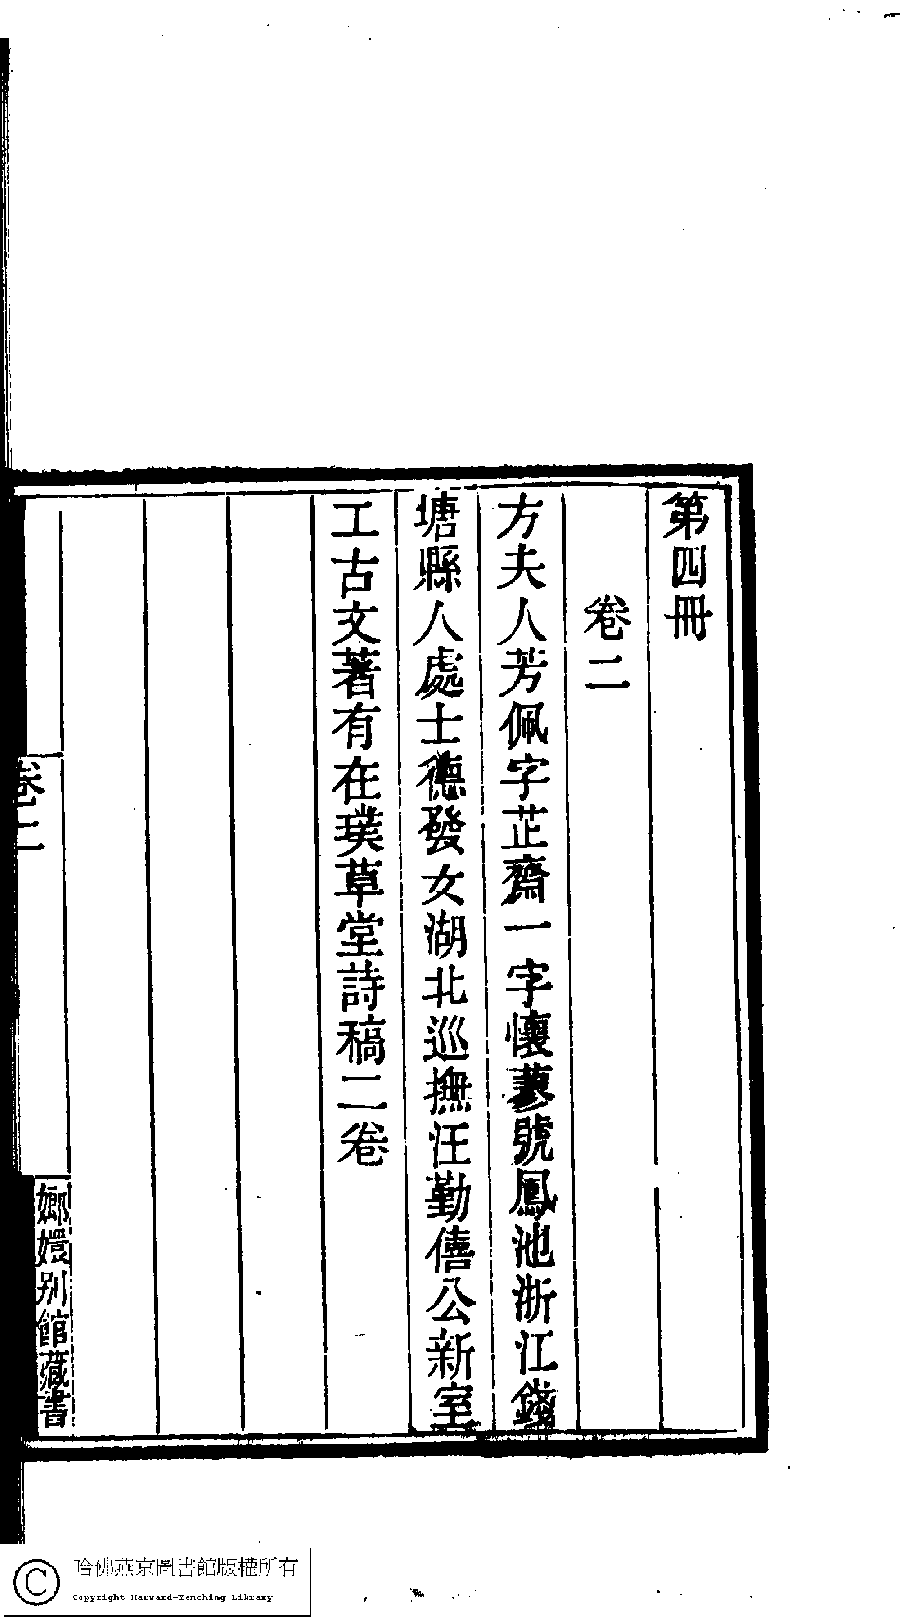 第四冊
卷二
方夫人芳佩字芷齋一字懷蓼號鳳池浙江錢
塘縣人處士德發女湖北巡撫汪勤僖公新室
工古文著有在璞草堂詩稿二卷
卷二
嫏嬛別館藏書
哈佛燕京圖書館版權所有
Copyright Harvard-Yenching Library